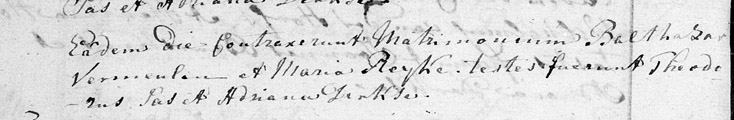 Pas et Adriana Derkse.
Eadem die Contraxerunt Matrimonium Balthazar
Vermeulen et Maria Reyke. testes fuerunt Theodo-
-rus Pas et Adriana Derkse.